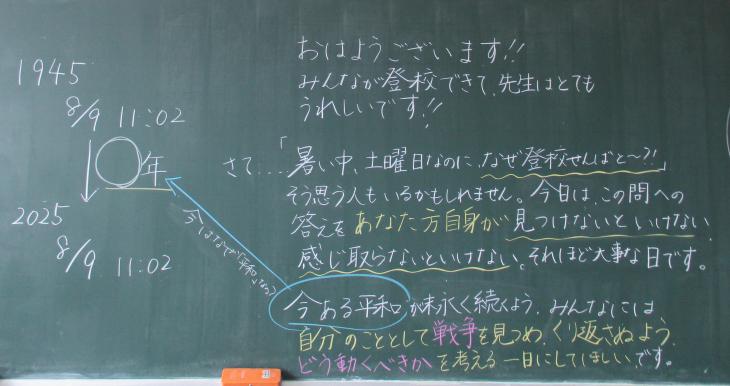 1945
8/9 11:02
○年
2025
8/9 11:02
今はなぜ「平和」なの?
おはようございます!!
みんなが登校できて、先生はとても
うれしいです!!
さて…「暑い中、土曜日なのに、なぜ登校せんばと〜?!」
そう思う人もいるかもしれません。今日は、この問への
答えをあなた方自身が見つけないといけない、
感じ取らないといけない。それほど大事な日です。
今ある平和が末永く続くよう、みんなには
自分のこととして戦争を見つめ、くり返さぬよう、
どう動くべきかを考える一日にしてほしいです。